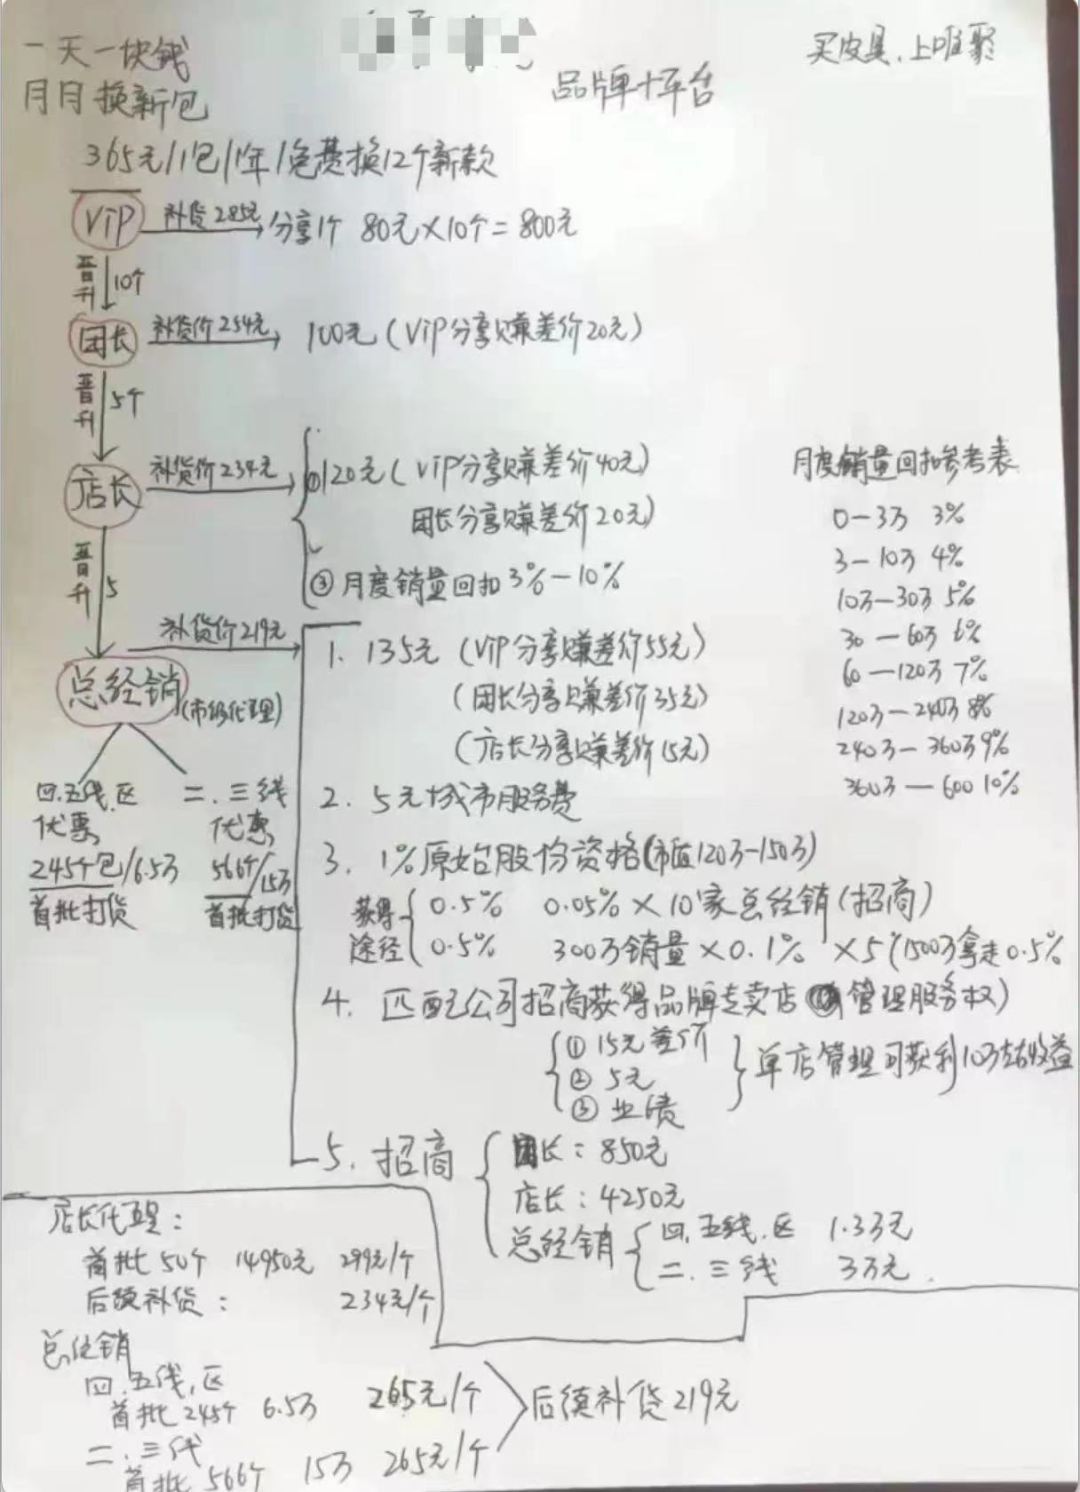 一天一块钱
月月换新包
买皮具,上唯聚
品牌+平台
365元/1包/1年/免费换12个新款
VIP 补货285元 分享1个 80元×10个=800元
晋升 10个
团长 补货价254元 100元(VIP分享赚差价20元)
晋升 5个
店长 补货价234元 ①120元(VIP分享赚差价40元)
团长分享赚差价20元)
③月度销量回扣3%-10%
月度销量回扣参考表
0-3万 3%
3-10万 4%
10万-30万 5%
30-60万 6%
60-120万 7%
120万-240万 8%
240万-360万 9%
360万-600 10%
晋升 5
总经销(市级代理) 补货价219元
1. 135元(VIP分享赚差价55元)
(团长分享赚差价35元)
(店长分享赚差价15元)
2. 5元城市服务费
3. 1%原始股份资格(市值120万-150万)
获得途径
0.5% 0.05%×10家总经销(招商)
0.5% 300万销量×0.1%×5(1500万拿走0.5%
4. 匹配公司招商获得品牌专卖店 管理服务权)
①15元差价
②5元
③业绩
单店管理可获利10万左右收益
5. 招商
团长:850元
店长:4250元
总经销
四.五线.区 1.3万元
二.三线 3万元.
四.五线.区
优惠
245个包/6.5万
首批打货
二.三线
优惠
566个/15万
首批打货
店长代理:
首批50个 14950元 299元/个
后续补货: 234元/个
总经销
四.五线,区
首批245个 6.5万 265元/个
二.三线
首批566个 15万 265元/个
后续补货219元